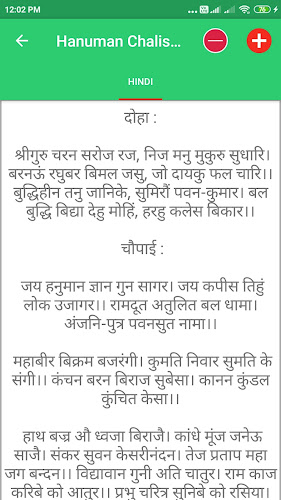 12:02 PM
70
Hanuman Chalis...
HINDI
दोहा :
श्रीगुरु चरन सरोज रज, निज मनु मुकुरु सुधारि।
बरनऊं रघुबर बिमल जसु, जो दायकु फल चारि।।
बुद्धिहीन तनु जानिके, सुमिरौं पवन-कुमार। बल
बुद्धि बिद्या देहु मोहिं, हरहु कलेस बिकार।।
चौपाई :
जय हनुमान ज्ञान गुन सागर। जय कपीस तिहुं
लोक उजागर।। रामदूत अतुलित बल धामा।
अंजनि-पुत्र पवनसुत नामा।।
महाबीर बिक्रम बजरंगी। कुमति निवार सुमति के
संगी।। कंचन बरन बिराज सुबेसा। कानन कुंडल
कुंचित केसा।।
हाथ बज्र औ ध्वजा बिराजै। कांधे मूंज जनेऊ
साजै। संकर सुवन केसरीनंदन। तेज प्रताप महा
जग बन्दन।। विद्यावान गुनी अति चातुर। राम काज
करिबे को आतुर।। प्रभु चरित्र सुनिबे को रसिया।